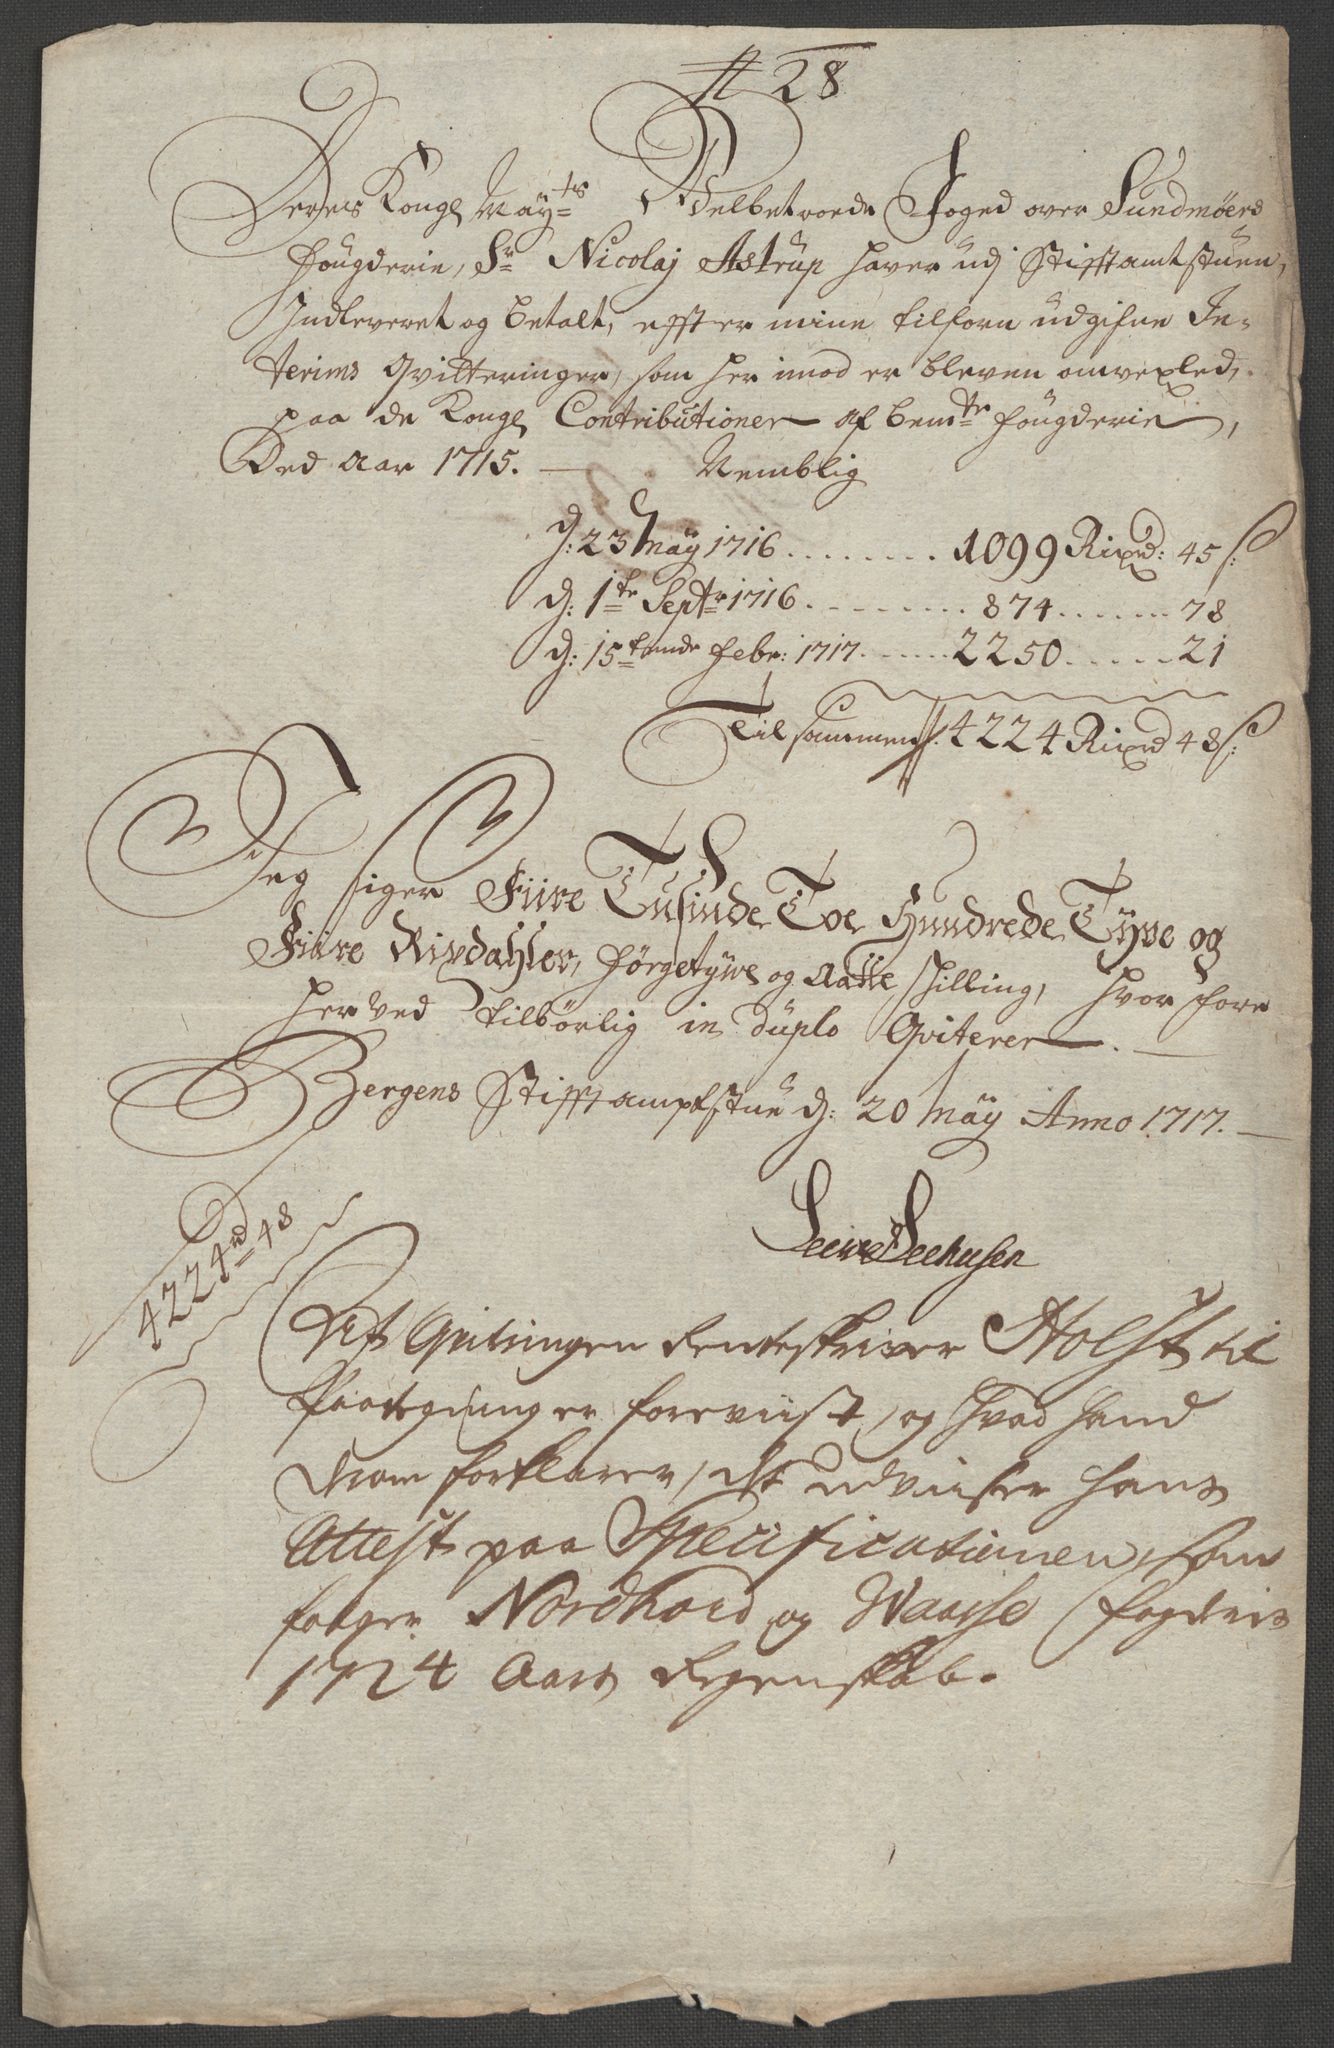 N 28
Deres Kongl Mayts Velbetroede Foged over Sundmøers
Fougderie, Sr Nicolaj Astrup haver udj Stifftamtstuen,
Indleveret og betalt, effter mine tilforn udgifne In-
terims Qvitteringer, som her imod er bleven omvexled,
paa de Kongl Contributioner af bemte Fougderie,
Ded Aar 1715. Nemblig
d: 23 May 1716 . . . . . . . . 1099 Rixd: 45 s:
d: 1te Septr 1716 . . . . . . . . . 874 . . . . . . . 78
d: 15tende Febr: 1717 . . . . . . 2250 . . . . . . 21
Tilsammen 4224 Rixd 48 s:
Jeg siger Fiire Tusinde Toe Hundrede Tyve og
Fiire Rixdahler, förgetyve og Aatte skilling, hvor fore
her ved tilbörlig in duplo Qviterer.
Bergens Stifftamptstue d: 20 May Anno 1717.
Seehusen
4224 rd 48
Qvitringen Renteskriver Holst til
er foreviist, og hvad hand
forklarer, det udviiser hans
Attest paa Specificationen, som
følger Nordhord og Waasse Fogderis
1724 Aars Regenskab.